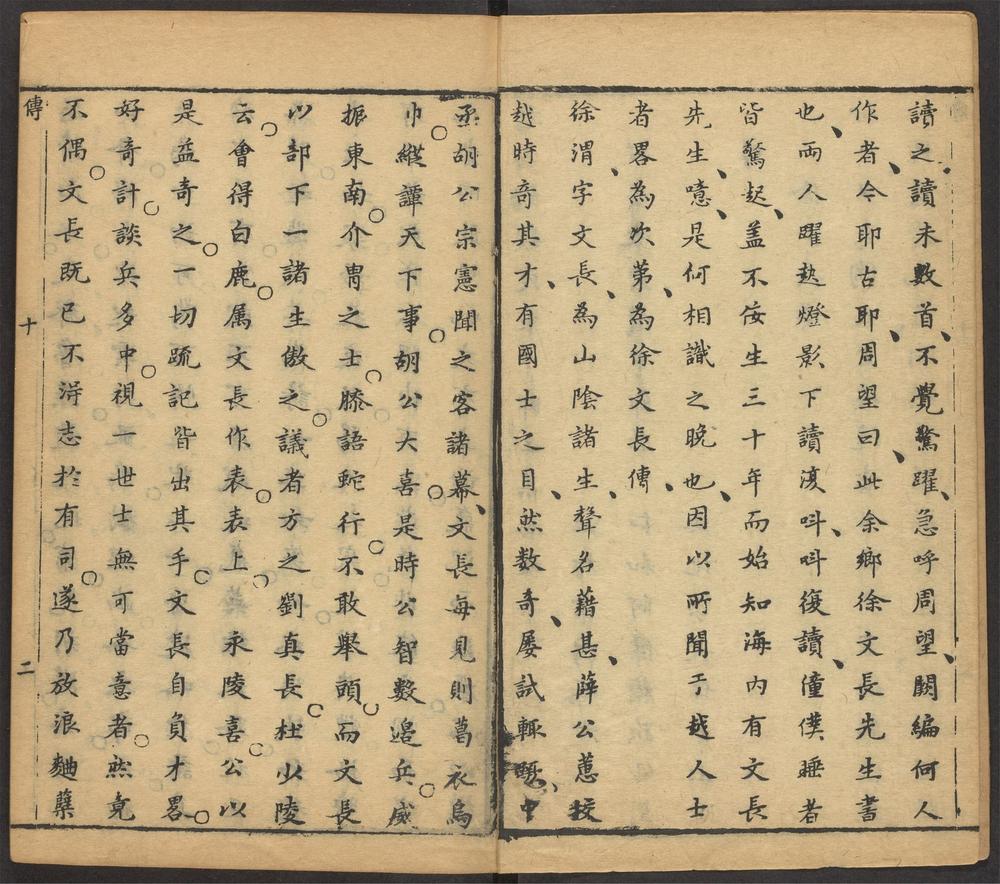 讀之讀未數首不覺驚躍急呼周望闕編何人
作者今耶古耶周望曰此余鄉徐文長先生書
也兩人躍起燈影下讀復叫叫復讀僮僕睡者
皆驚起盖不佞生三十年而始知海內有文長
先生噫是何相識之晚也因以所聞于越人士
者畧為次第為徐文長傳
徐渭字文長為山陰諸生聲名藉甚薛公蕙挍
越時奇其才有國士之目然数奇屡試輙蹶中
丞胡公宗憲聞之客諸幕文長每見則葛衣烏
巾縱譚天下事胡公大喜是時公智數邉兵威
振東南介冑之士膝語蛇行不敢舉頭而文長
以部下一諸生傲之議者方之劉真長杜少陵
云會得白鹿属文長作表表上永陵喜公以
是益奇之一切䟽記皆出其手文長自負才畧
好奇計談兵多中視一世士無可當意者然竟
不偶文長既已不淂志於有司遂乃放浪麯蘖
傳
十
二